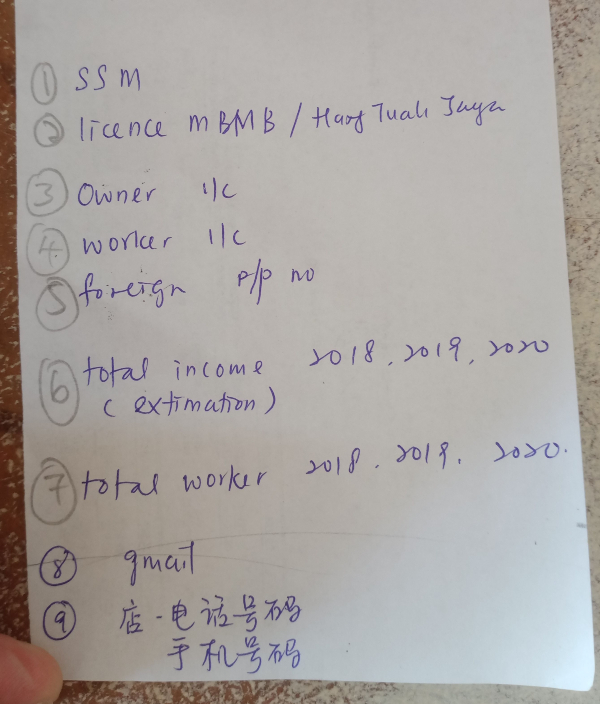 ① SSM
② licence MBMB / Hang Tuah Jaya
③ Owner I/C
④ worker I/C
⑤ foreign P/P no
⑥ total income 2018, 2019, 2020
( extimation )
⑦ total worker 2018. 2019. 2020.
⑧ gmail
⑨ 店 - 电话号码
手机号码